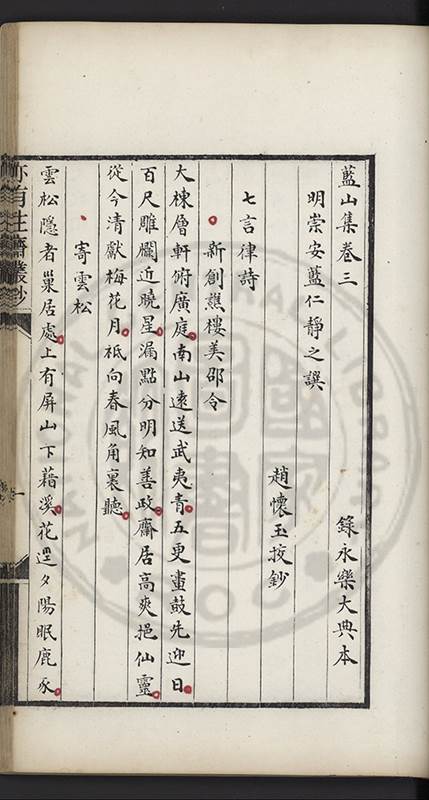 藍山集卷三　錄永樂大典本
明崇安藍仁靜之譔
趙懷玉挍鈔
七言律詩
新創譙樓美邵令
大棟層軒俯廣庭南山遠送武夷青五更畫鼓先迎日
百尺雕闌近曉星漏點分明知善政齋居高爽挹仙靈
從今清獻梅花月祗向春風角裏聽
寄雲松
雲松隱者巢居處上有屏山下藉溪花逕夕陽眠鹿豕
亦有生齋叢鈔